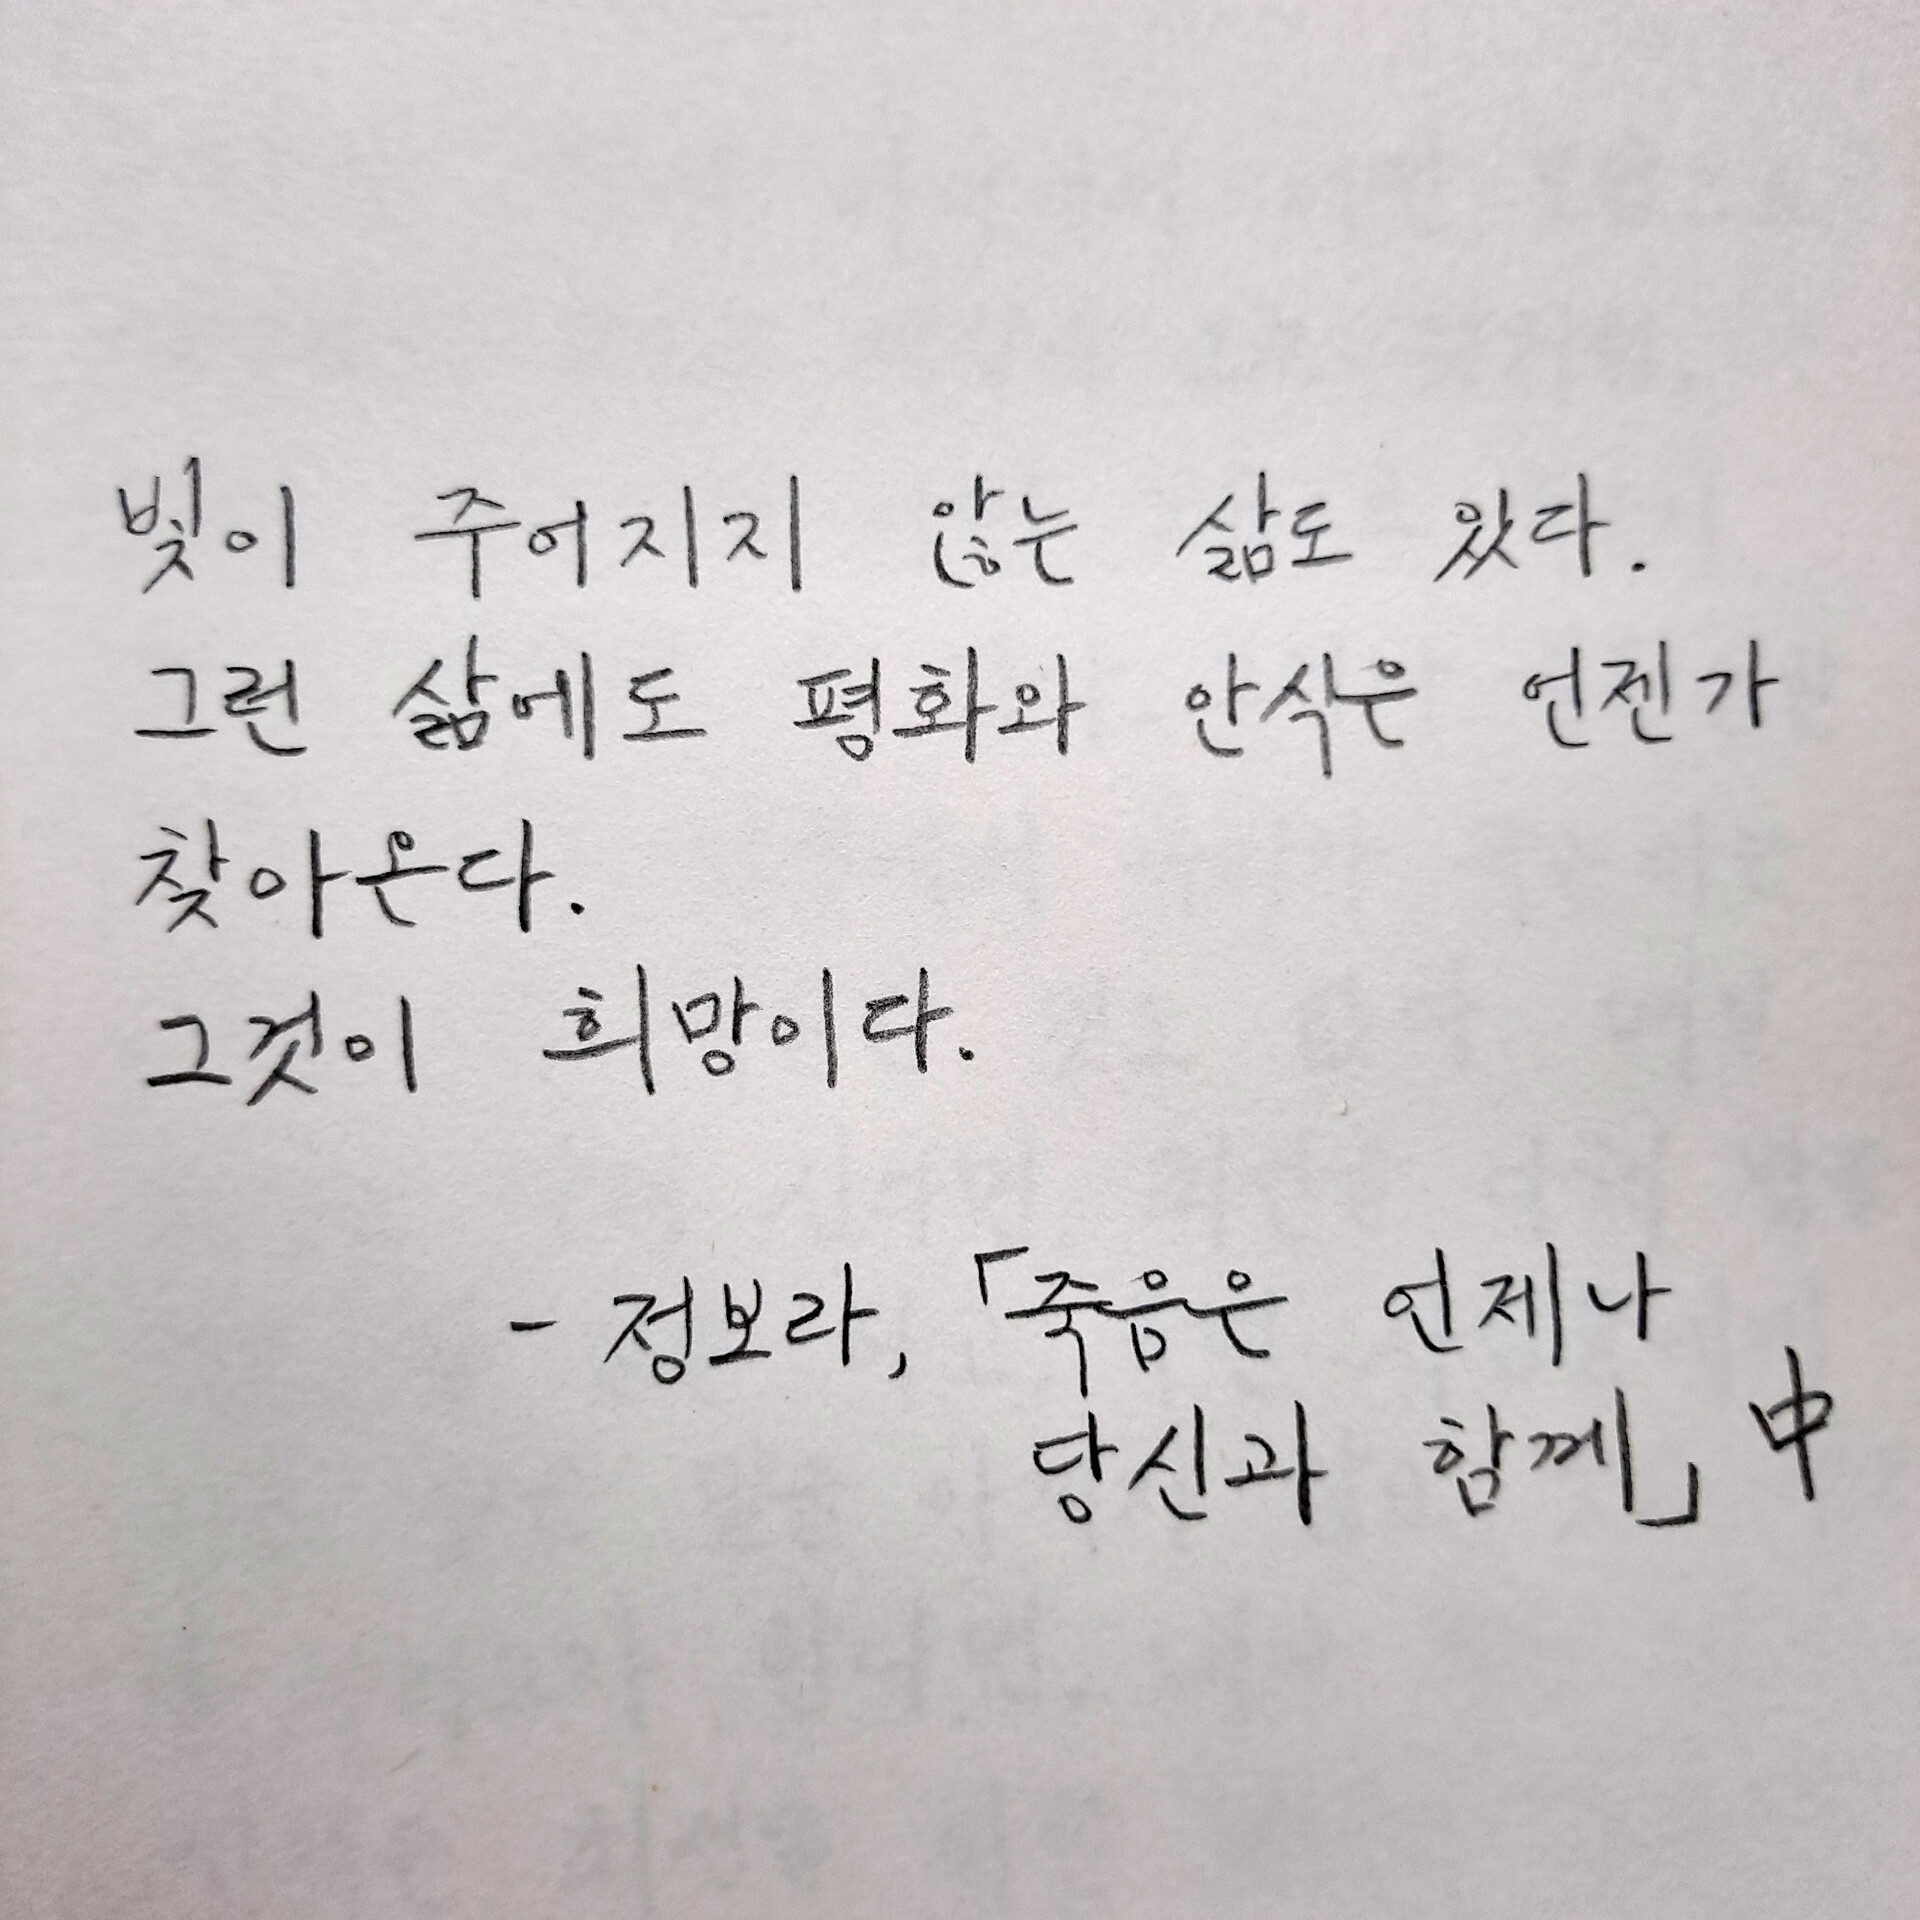 빛이 주어지지 않는 삶도 있다.
그런 삶에도 평화와 안식은 언젠가
찾아온다.
그것이 희망이다.
- 정보라, 「죽음은 언제나
당신과 함께」 中